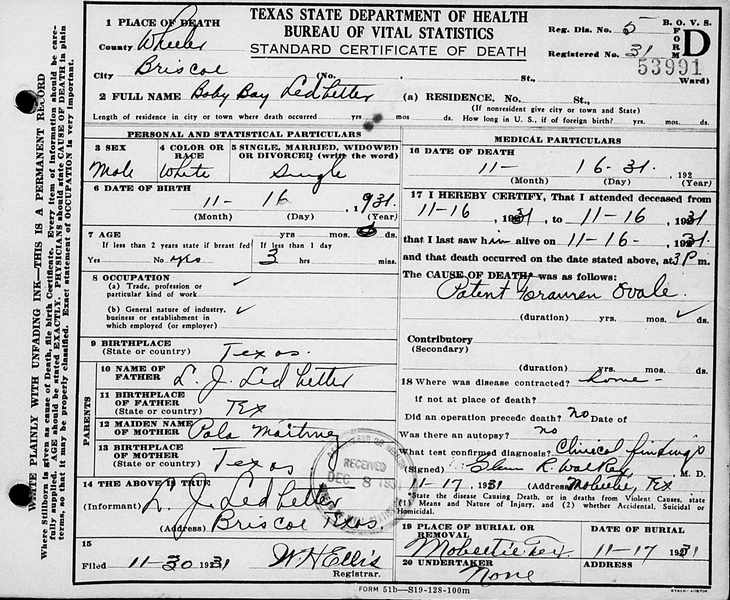 TEXAS STATE DEPARTMENT OF HEALTH
BUREAU OF VITAL STATISTICS
STANDARD CERTIFICATE OF DEATH
Reg. Dis. No. 5
Registered No. 31
B. O. V. S.
FORM D
53991
WRITE PLAINLY WITH UNFADING INK—THIS IS A PERMANENT RECORD
Where Stillborn is given as cause of Death, file birth Certificate. Every item of information should be care-
fully supplied. AGE should be stated EXACTLY. PHYSICIANS should state CAUSE OF DEATH in plain
terms, so that it may be properly classified. Exact statement of OCCUPATION is very important.
1 PLACE OF DEATH
County Wheeler
City Briscoe (No. St., Ward)
2 FULL NAME Baby Boy Ledbetter (a) RESIDENCE. No. St.,
(If nonresident give city or town and State)
Length of residence in city or town where death occurred yrs. mos. ds. How long in U. S., if of foreign birth? yrs. mos. ds.
PERSONAL AND STATISTICAL PARTICULARS
3 SEX Male
4 COLOR OR RACE White
5 SINGLE, MARRIED, WIDOWED OR DIVORCED (write the word) Single
6 DATE OF BIRTH
11- 16 1931.
(Month) (Day) (Year)
7 AGE yrs. mos. ds.
If less than 2 years state if breast fed If less than 1 day
Yes No yes 3 hrs mins.
8 OCCUPATION
(a) Trade, profession or
particular kind of work
(b) General nature of industry,
business or establishment in
which employed (or employer)
9 BIRTHPLACE
(State or country) Texas.
PARENTS
10 NAME OF FATHER L. J. Ledbetter
11 BIRTHPLACE OF FATHER
(State or country) Tex
12 MAIDEN NAME OF MOTHER
13 BIRTHPLACE OF MOTHER
(State or country) Texas
14 THE ABOVE IS TRUE
(Informant) L. J. Ledbetter
(Address) Briscoe Texas.
RECEIVED
DEC 8 1931
15
Filed 11-30 1931 W. H. Ellis
Registrar.
MEDICAL PARTICULARS
16 DATE OF DEATH
11- 16-31. 192
(Month) (Day) (Year)
17 I HEREBY CERTIFY, That I attended deceased from
11-16 1931, to 11-16 1931
that I last saw him alive on 11-16- 1931.
and that death occurred on the date stated above, at 3 P m.
The CAUSE OF DEATH was as follows:
Patent Foramen Ovale.
(duration) yrs. mos. ds.
Contributory
(Secondary)
(duration) yrs. mos. ds.
18 Where was disease contracted? home
if not at place of death?
Did an operation precede death? no Date of
Was there an autopsy? no
What test confirmed diagnosis? Clinical findings
(Signed) Glenn R. Walker M. D.
11-17 1931 (Address) Mobeetie, Tex
*State the disease Causing Death, or in deaths from Violent Causes, state
(1) Means and Nature of Injury, and (2) whether Accidental, Suicidal or
Homicidal.
19 PLACE OF BURIAL OR REMOVAL Mobeetie Tex.
DATE OF BURIAL 11-17 1931
20 UNDERTAKER None
FORM 51b—S19-128-100m